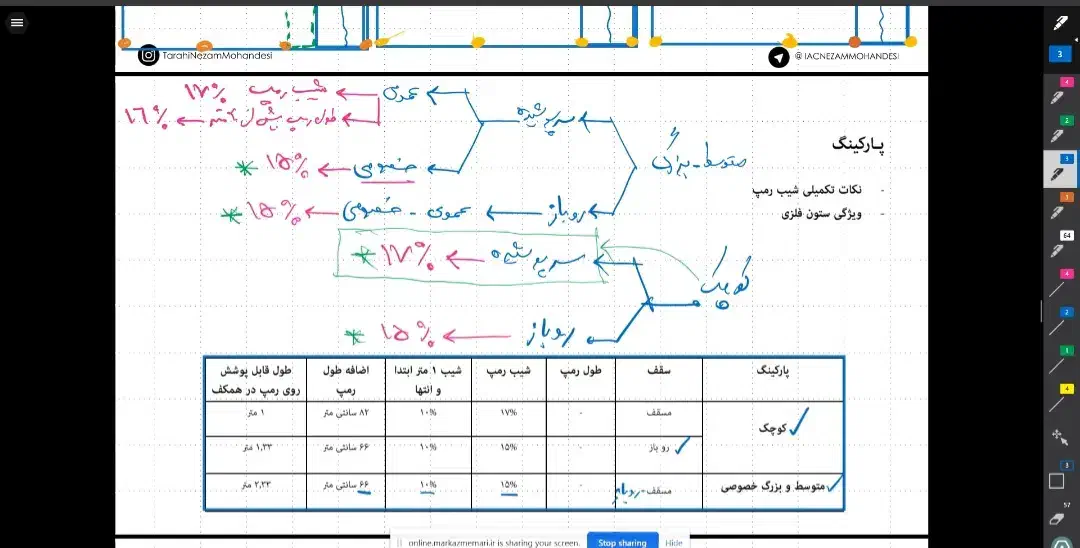 TarahiNezamMohandesi
@ IACNEZAMMOHANDESI
پارکینگ
- نکات تکمیلی شیب رمپ
- ویژگی ستون فلزی
متوسط - بزرگ
سرپوشیده
عمومی
شیب رمپ ۱۷%
۱۶%
خصوصی
۱۵% *
روباز
عمومی - خصوصی
۱۵% *
کوچک
سرپوشیده
۱۷% *
روباز
۱۵% *
پارکینگ سقف طول رمپ شیب رمپ شیب ۱ متر ابتدا و انتها اضافه طول رمپ طول قابل پوشش روی رمپ در همکف
کوچک مسقف - ۱۷% ۱۰% ۸۲ سانتی متر ۱ متر
رو باز - ۱۵% ۱۰% ۶۶ سانتی متر ۱,۳۳ متر
متوسط و بزرگ خصوصی مسقف-روباز - ۱۵% ۱۰% ۶۶ سانتی متر ۲,۳۳ متر
online.markazmemari.ir is sharing your screen.
Stop sharing
Hide
3
4
2
3
3
64
4
2
1
4
3
57